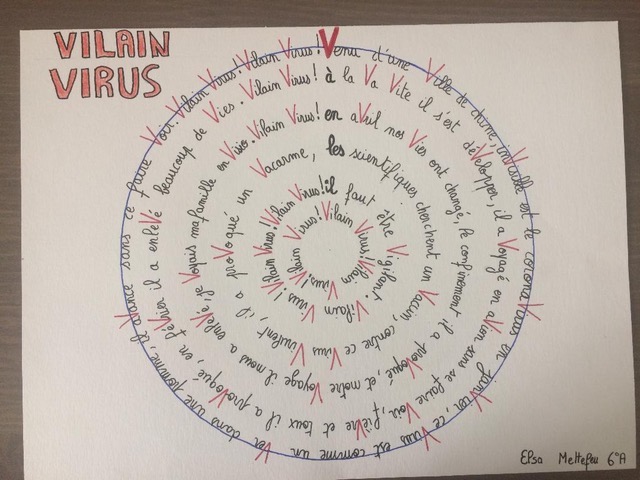 VILAIN
VIRUS
Venu d'une Ville de chine, inVisible est le coronaVirus en janVier, ce Virus est comme un Ver dans une pomme, il aVance sans se faire Voir. Vilain Virus! Vilain Virus!
à la Va Vite il s'est déVelopper, il a Voyagé en aVion sans se faire Voir, fièVre et toux il a proVoqué, en féVrier il a enleVé beaucoup de Vies. Vilain Virus!
en aVril nos Vies ont changé, le confinement il a proVoqué, et notre Voyage il nous a enleVé, je Voyais ma famille en Visio. Vilain Virus!
les scientifiques cherchent un Vaccin, contre ce Virus Virulent, il a proVoqué un Vacarme,
il faut être Vigilant. Vilain Virus! Vilain Virus!
Vilain Virus! Vilain Virus! Vilain Virus!
Elsa 6°A